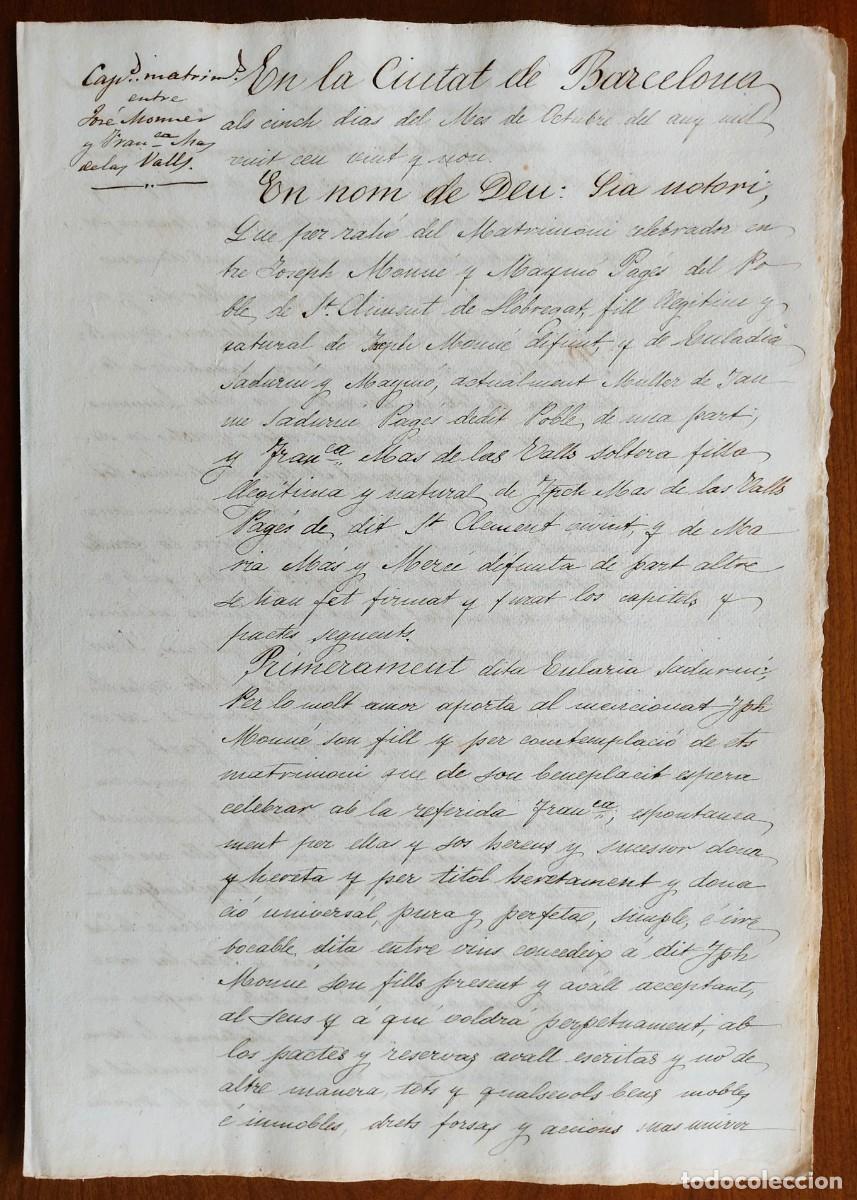 Cap.s matrim.s
entre
José Monner
y Fran.ca Mas
de las Valls.
En la Ciutat de Barcelona
als cinch dias del Mes de Octubre del any mil
vuit cen vint y nou.
En nom de Deu: Sia notori,
Que per rahó del Matrimoni celebrador en
tre Joseph Monné y Maymó Pagés del Po
ble de St. Climent de Llobregat, fill llegitim y
natural de Joseph Monné difunt, y de Euladia
Sadurní y Maymó, actualment Muller de Jau
me Sadurní Pagés dedit Poble, de una part;
y Fran.ca Mas de las Valls soltera filla
llegitima y natural de Jph Mas de las Valls
Pagés de dit St Clement vivint, y de Ma
ria Más y Mercé difunta de part altre
se han fet firmat y jurat los capitols y
pactes seguents.
Primerament dita Eularia Sadurní;
Per lo molt amor aporta al mencionat Jph
Monné son fill y per contemplació de ets
matrimoni que de son beneplacit espera
celebrar ab la referida Fran.ca, espontanea
ment per ellas y sos hereus y sucessor dona
y hereta y per titol heretament y dona
ció universal, pura y perfeta, simple, é irre
bocable dita entre vius concedeix á dit Jph
Monné son fills present y avall acceptant,
al seus y á qui voldrá perpetuament, ab
los pactes y reservas avall escritas y no de
altre manera, tots y qualsevols bens mobles
é inmobles, drets forsas y accions mas univer
todocoleccion